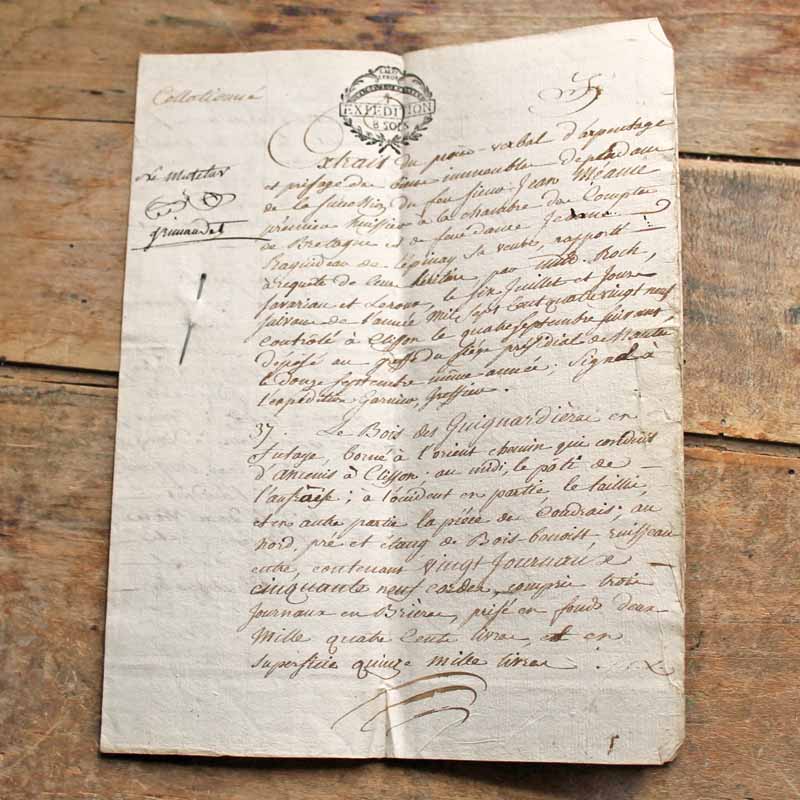 Collationné
EXPEDITION
8 SOLS
Le
grimaudet
Extrait du procès-verbal d'arpentage
et prisage de biens immeuble dependans
de la succession du feu sieur Jean Méance
premier huissier à la chambre des Comptes
de Bretagne et de feue dame Jeanne
Raguideau de Lépinay sa veuve, rapporté
à requete de leurs heritiers par Roch,
Savariau et Leroux, le six Juillet et Jours
suivans de l'année mil sept cent quatre vingt neuf
controlé à Clisson le quatre septembre suivant,
déposé au greffe du siège présidial de Nantes
le douze septembre même année; Signé à
l'expedition Garnier, Greffier.
37. Le Bois des Guignardières en
futaye, borné à l'orient chemin qui conduit
d'ancenis à Clisson; au midi, le pati de
; à l'occident en partie, le taillis,
et en autre partie la pièce de Coudrais; au
nord, pré et étang de Bois-benoist, ruisseau
entre, contenant vingt Journaux
cinquante neuf cordes, compris trois
Journaux en Brières, prisé en fonds deux
Mille quatre Cents livres, et en
superficie quinze mille livres